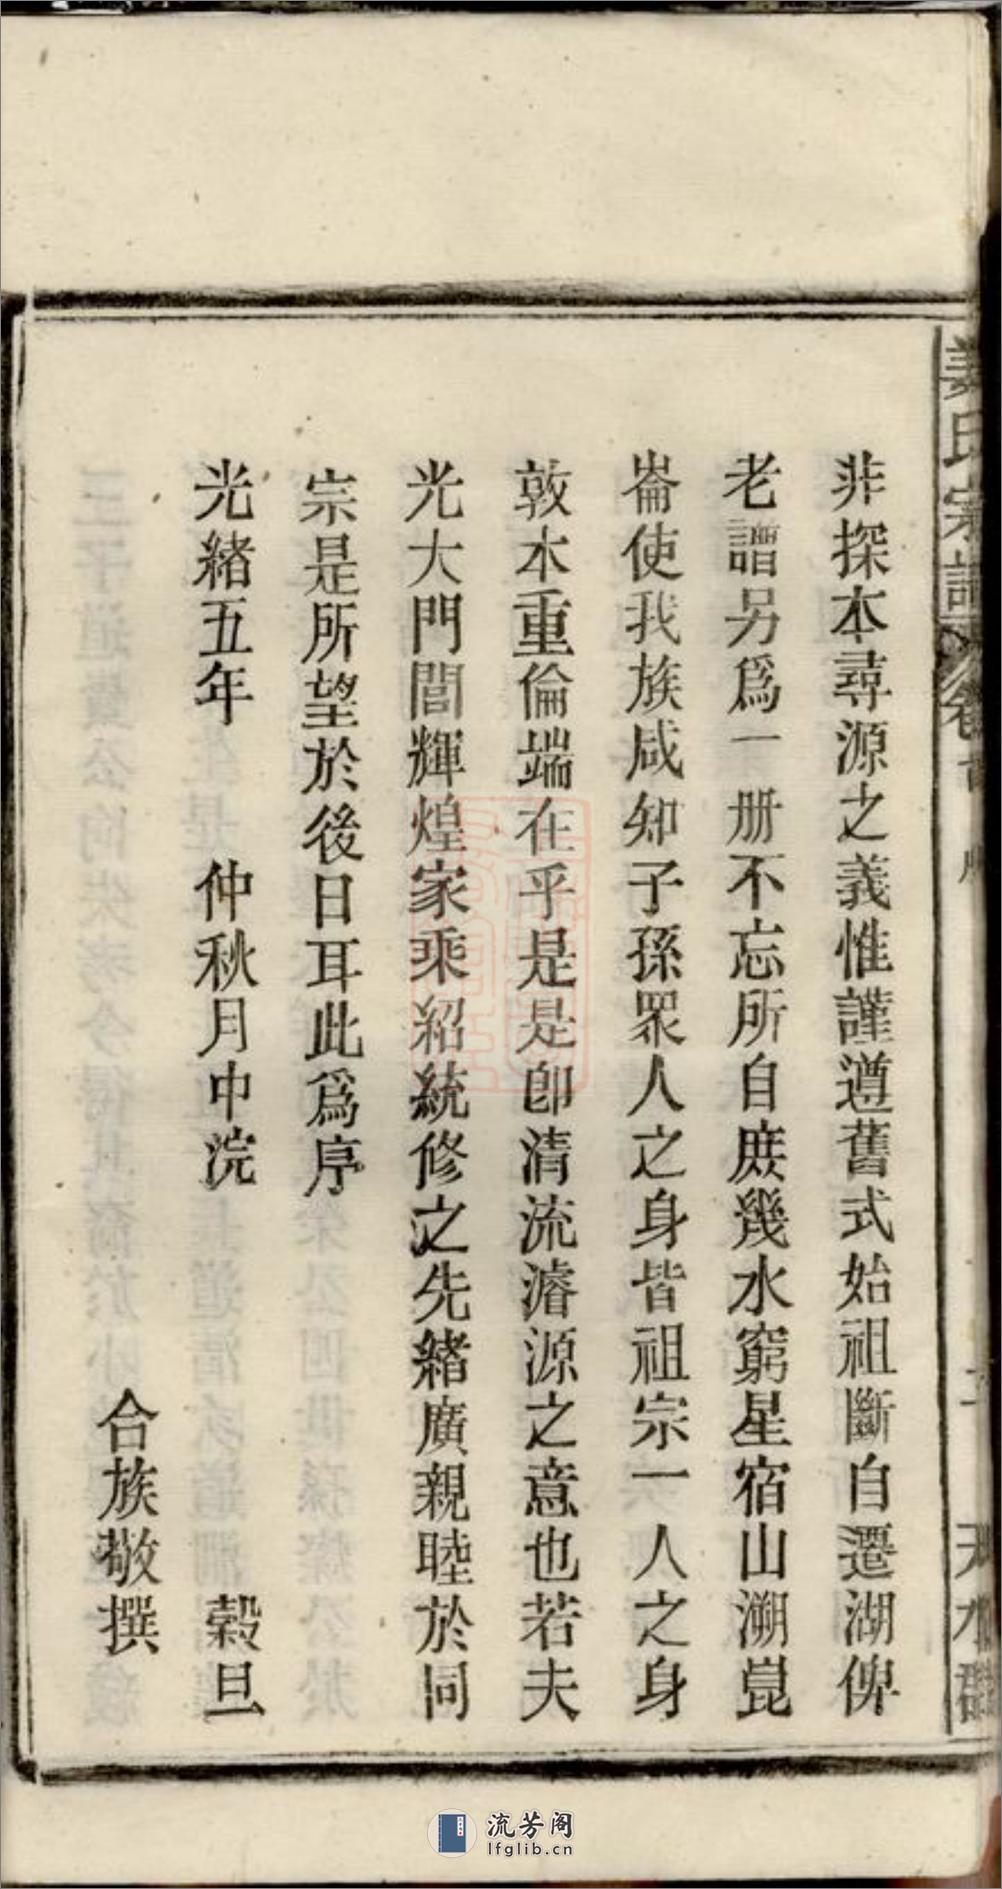 非探本尋源之義惟謹遵舊式始祖斷自遷湖俾
老譜另爲一册不忘所自庶幾水窮星宿山溯崑
崙使我族咸知子孫眾人之身皆祖宗一人之身
敦本重倫端在乎是是卽清流濬源之意也若夫
光大門閭輝煌家乘紹統修之先緒廣親睦於同
宗是所望於後日耳此爲序
光緒五年 仲秋月中浣 穀旦
合族敬撰
姜氏宗譜 卷首 天水郡
流芳阁
lfglib.cn